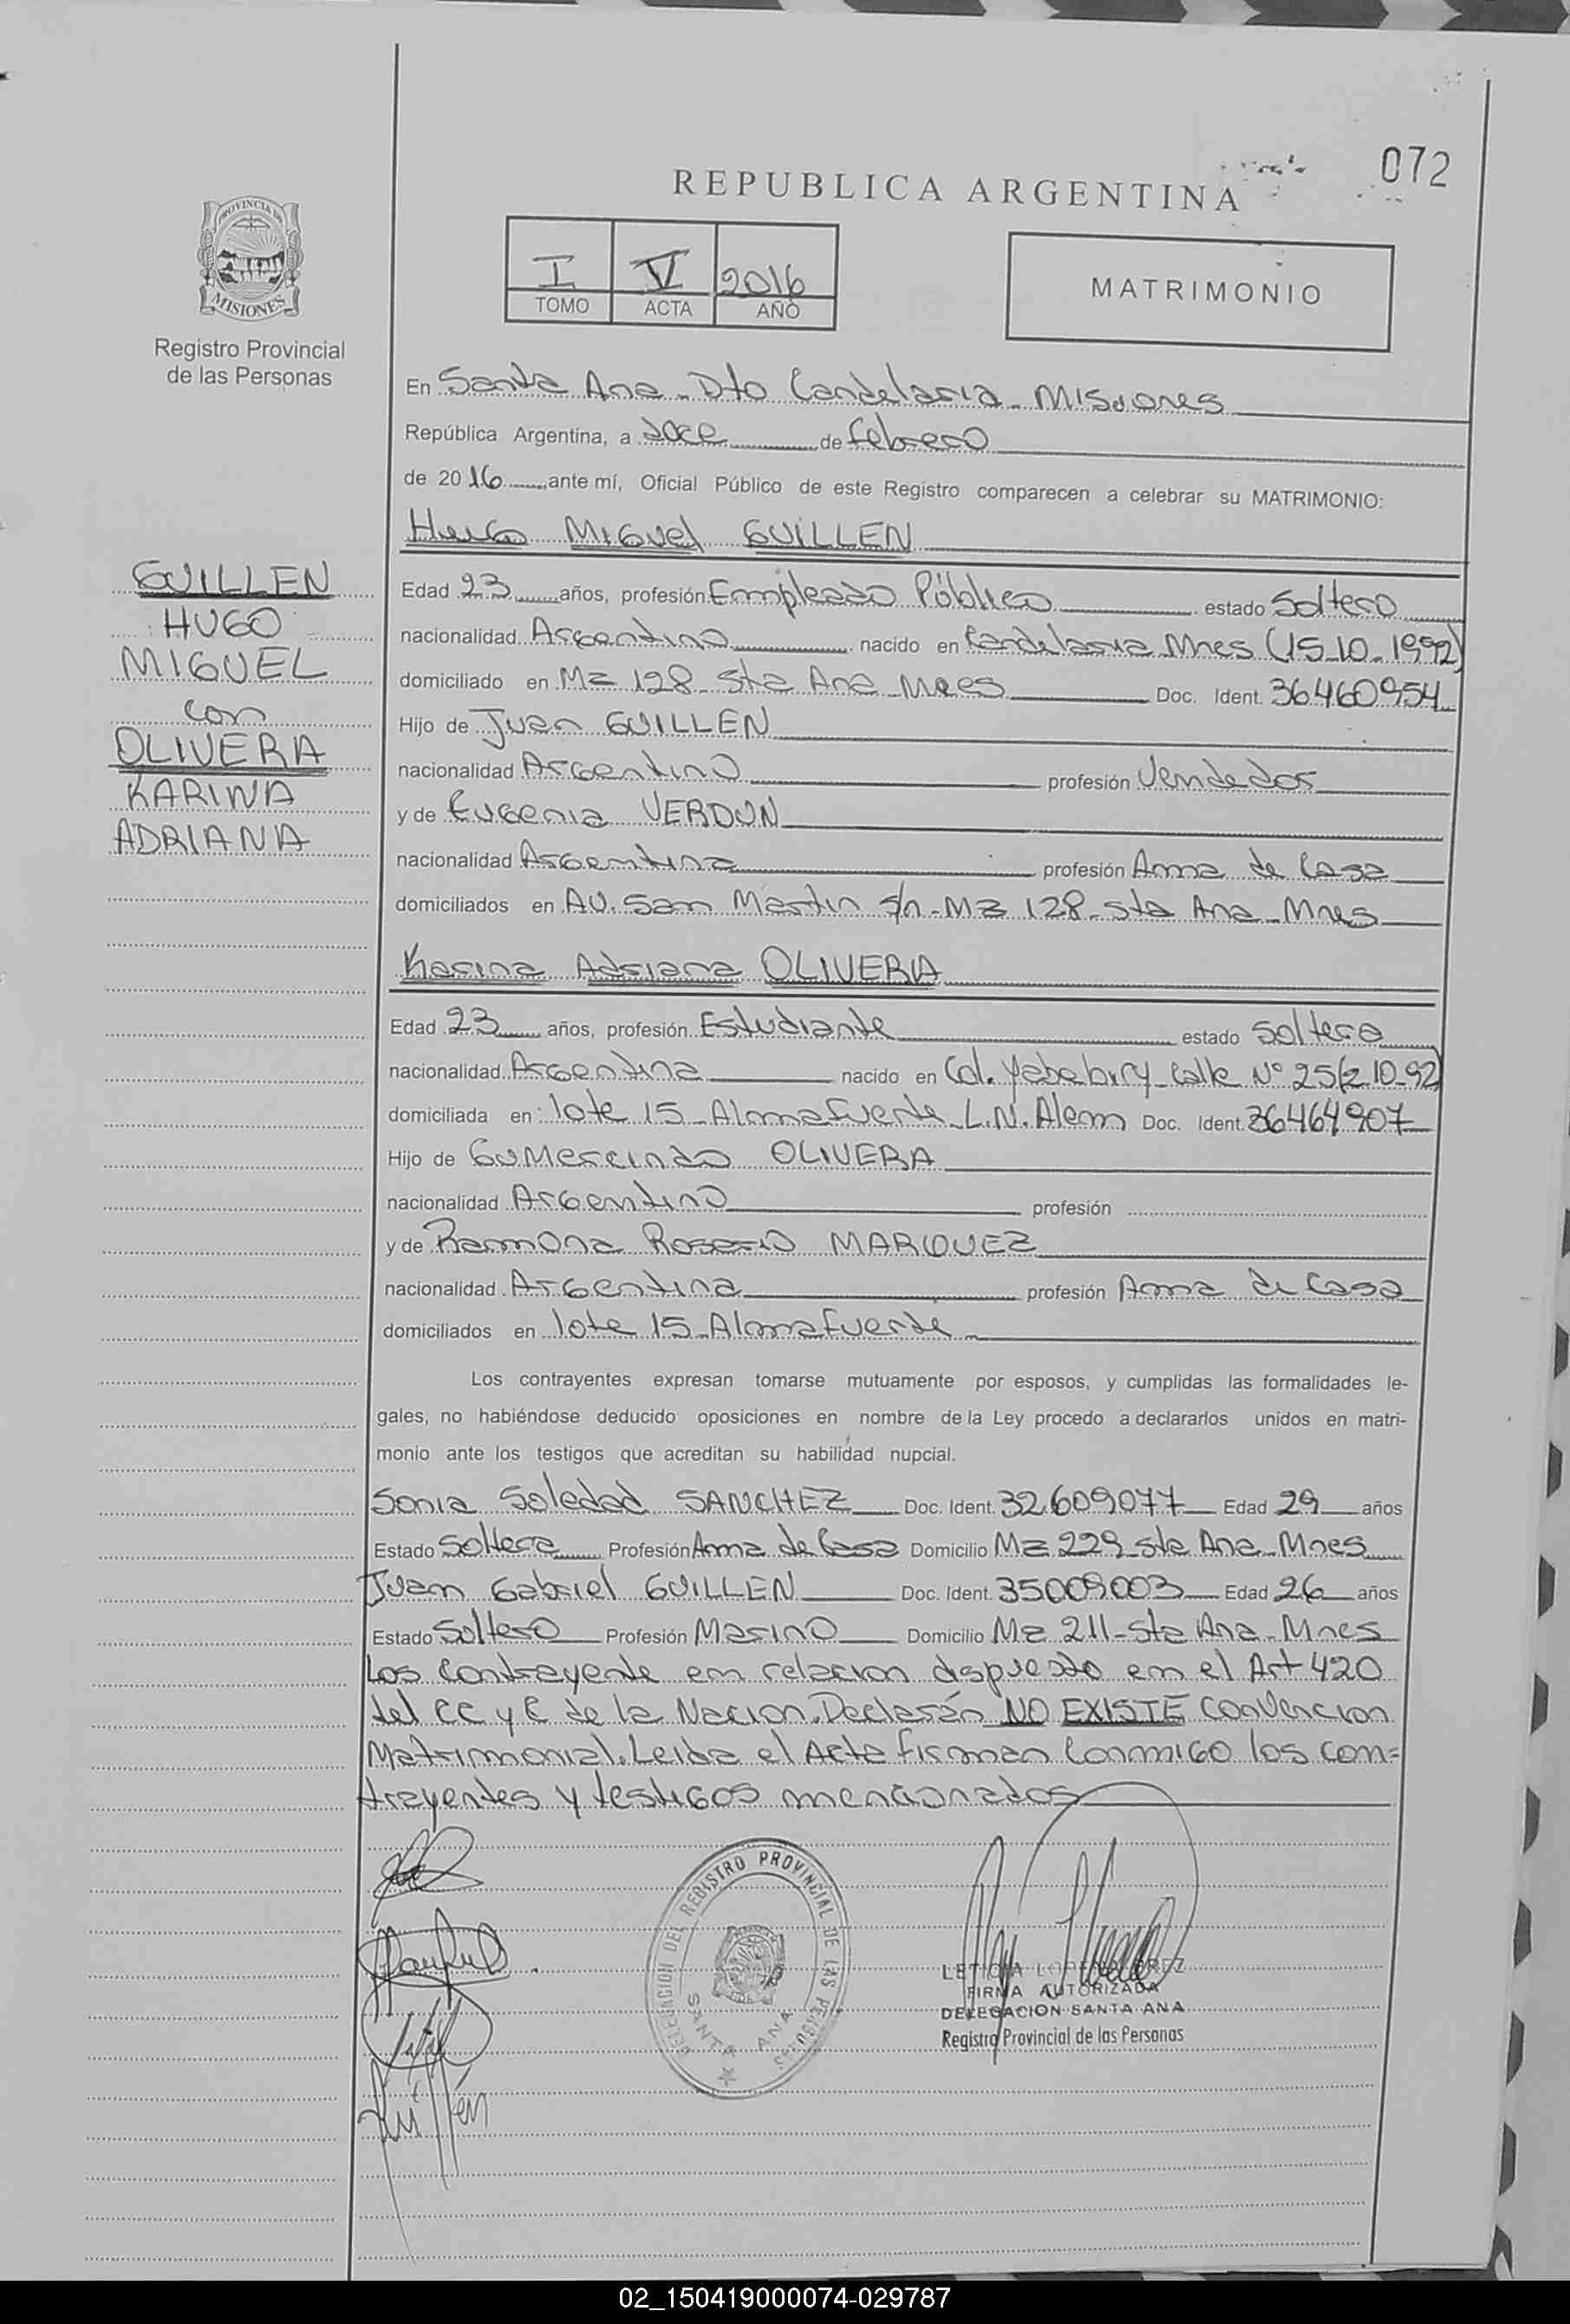 072
REPUBLICA ARGENTINA
PROVINCIA DE
MISIONES
Registro Provincial
de las Personas
I V 2016
TOMO ACTA AÑO
MATRIMONIO
En Santa Ana - Dto Candelaria - Misiones
República Argentina, a doce de febrero
de 2016 ante mí, Oficial Público de este Registro comparecen a celebrar su MATRIMONIO:
Hugo Miguel GUILLEN
GUILLEN
HUGO
MIGUEL
con
OLIVERA
KARINA
ADRIANA
Edad 23 años, profesión Empleado Público estado Soltero
nacionalidad Argentino nacido en Candelaria Mnes (15-10-1992)
domiciliado en Mz 128 - Sta Ana - Mnes Doc. Ident. 36460954
Hijo de Juan GUILLEN
nacionalidad Argentino profesión Vendedor
y de Eugenia VERDUN
nacionalidad Argentina profesión Ama de Casa
domiciliados en AV. San Martin s/n - Mz 128 - Sta Ana - Mnes
Karina Adriana OLIVERA
Edad 23 años, profesión Estudiante estado Soltera
nacionalidad Argentina nacido en Col. Yabebiry - Calle N° 25 (2-10-92)
domiciliada en lote 15 - Almafuerte L.N. Alem Doc. Ident. 36464907
Hijo de Gumercindo OLIVERA
nacionalidad Argentino profesión
y de Ramona Rosario MARQUEZ
nacionalidad Argentina profesión Ama de Casa
domiciliados en lote 15 - Almafuerte
Los contrayentes expresan tomarse mutuamente por esposos, y cumplidas las formalidades le-
gales, no habiéndose deducido oposiciones en nombre de la Ley procedo a declararlos unidos en matri-
monio ante los testigos que acreditan su habilidad nupcial.
Sonia Soledad SANCHEZ Doc. Ident. 32.609077 Edad 29 años
Estado Soltera Profesión Ama de Casa Domicilio Mz 229 - Sta Ana - Mnes
Juan Gabriel GUILLEN Doc. Ident. 35009003 Edad 26 años
Estado Soltero Profesión Marino Domicilio Mz 211 - Sta Ana - Mnes
Los Contrayente en relacion dispuesto en el Art 420
del CC y C de la Nacion. Declarán NO EXISTE Convencion
Matrimonial. Leida el Acta firman Conmigo los con=
trayentes y testigos mencionados
DELEGACION DEL REGISTRO PROVINCIAL DE LAS PERSONAS
SANTA ANA
Guillén
LETICIA
FIRMA AUTORIZADA
DELEGACION SANTA ANA
Registro Provincial de las Personas
02_150419000074-029787